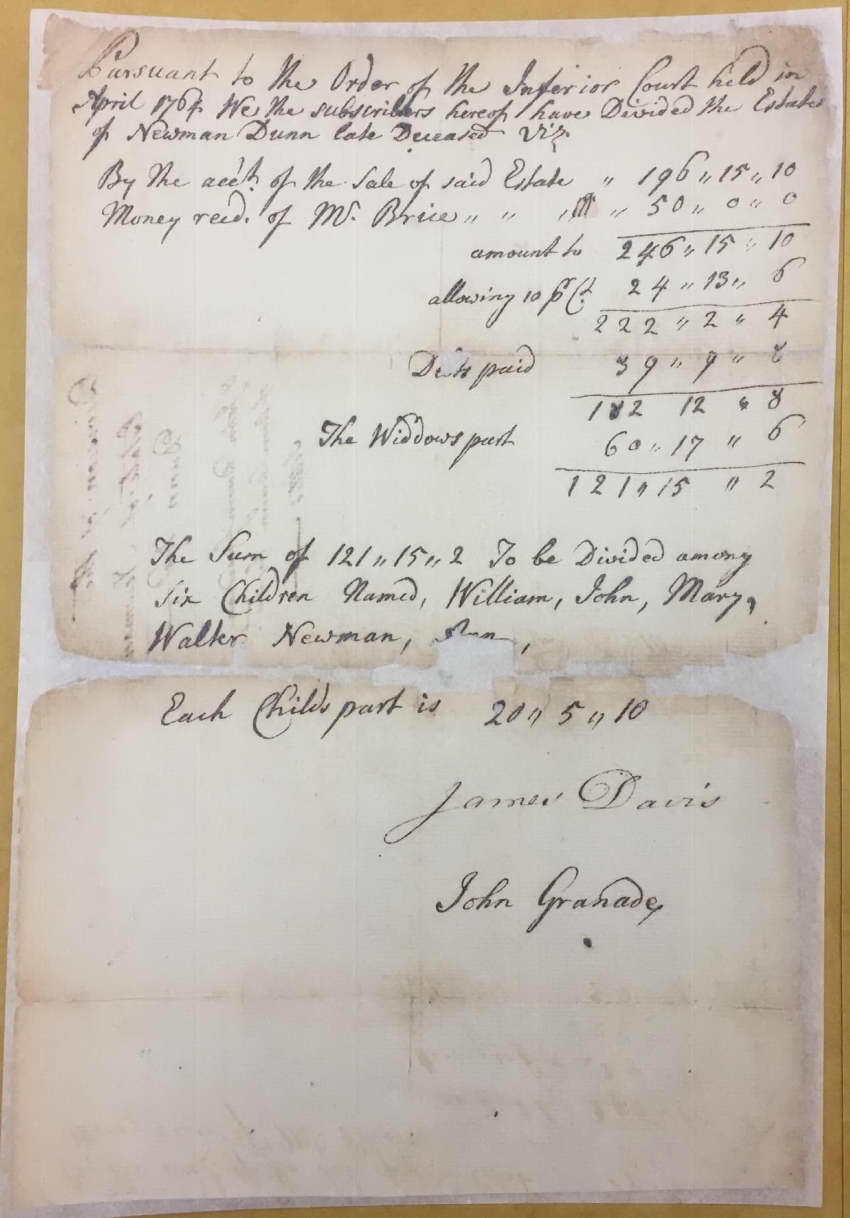 Pursuant to the Order of the Inferior Court held in
April 1764 We the subscribers hereof have Divided the Estate
of Newman Dunn late Deceased Viz
By the acct. of the Sale of said Estate " 196 " 15 " 10
Money recd. of Mr. Brice " " " " 50 " 0 " 0
amount to 246 " 15 " 10
allowing 10 pr Ct 24 " 13 " 6
222 " 2 " 4
Debts paid 39 " 9 " 8
182 12 " 8
The Widdows part 60 " 17 " 6
121 " 15 " 2
The Sum of 121 " 15 " 2 To be Divided among
Six Children Named, William, John, Mary,
Walter Newman,
Each Childs part is 20 " 5 " 10
James Davis
John Granade